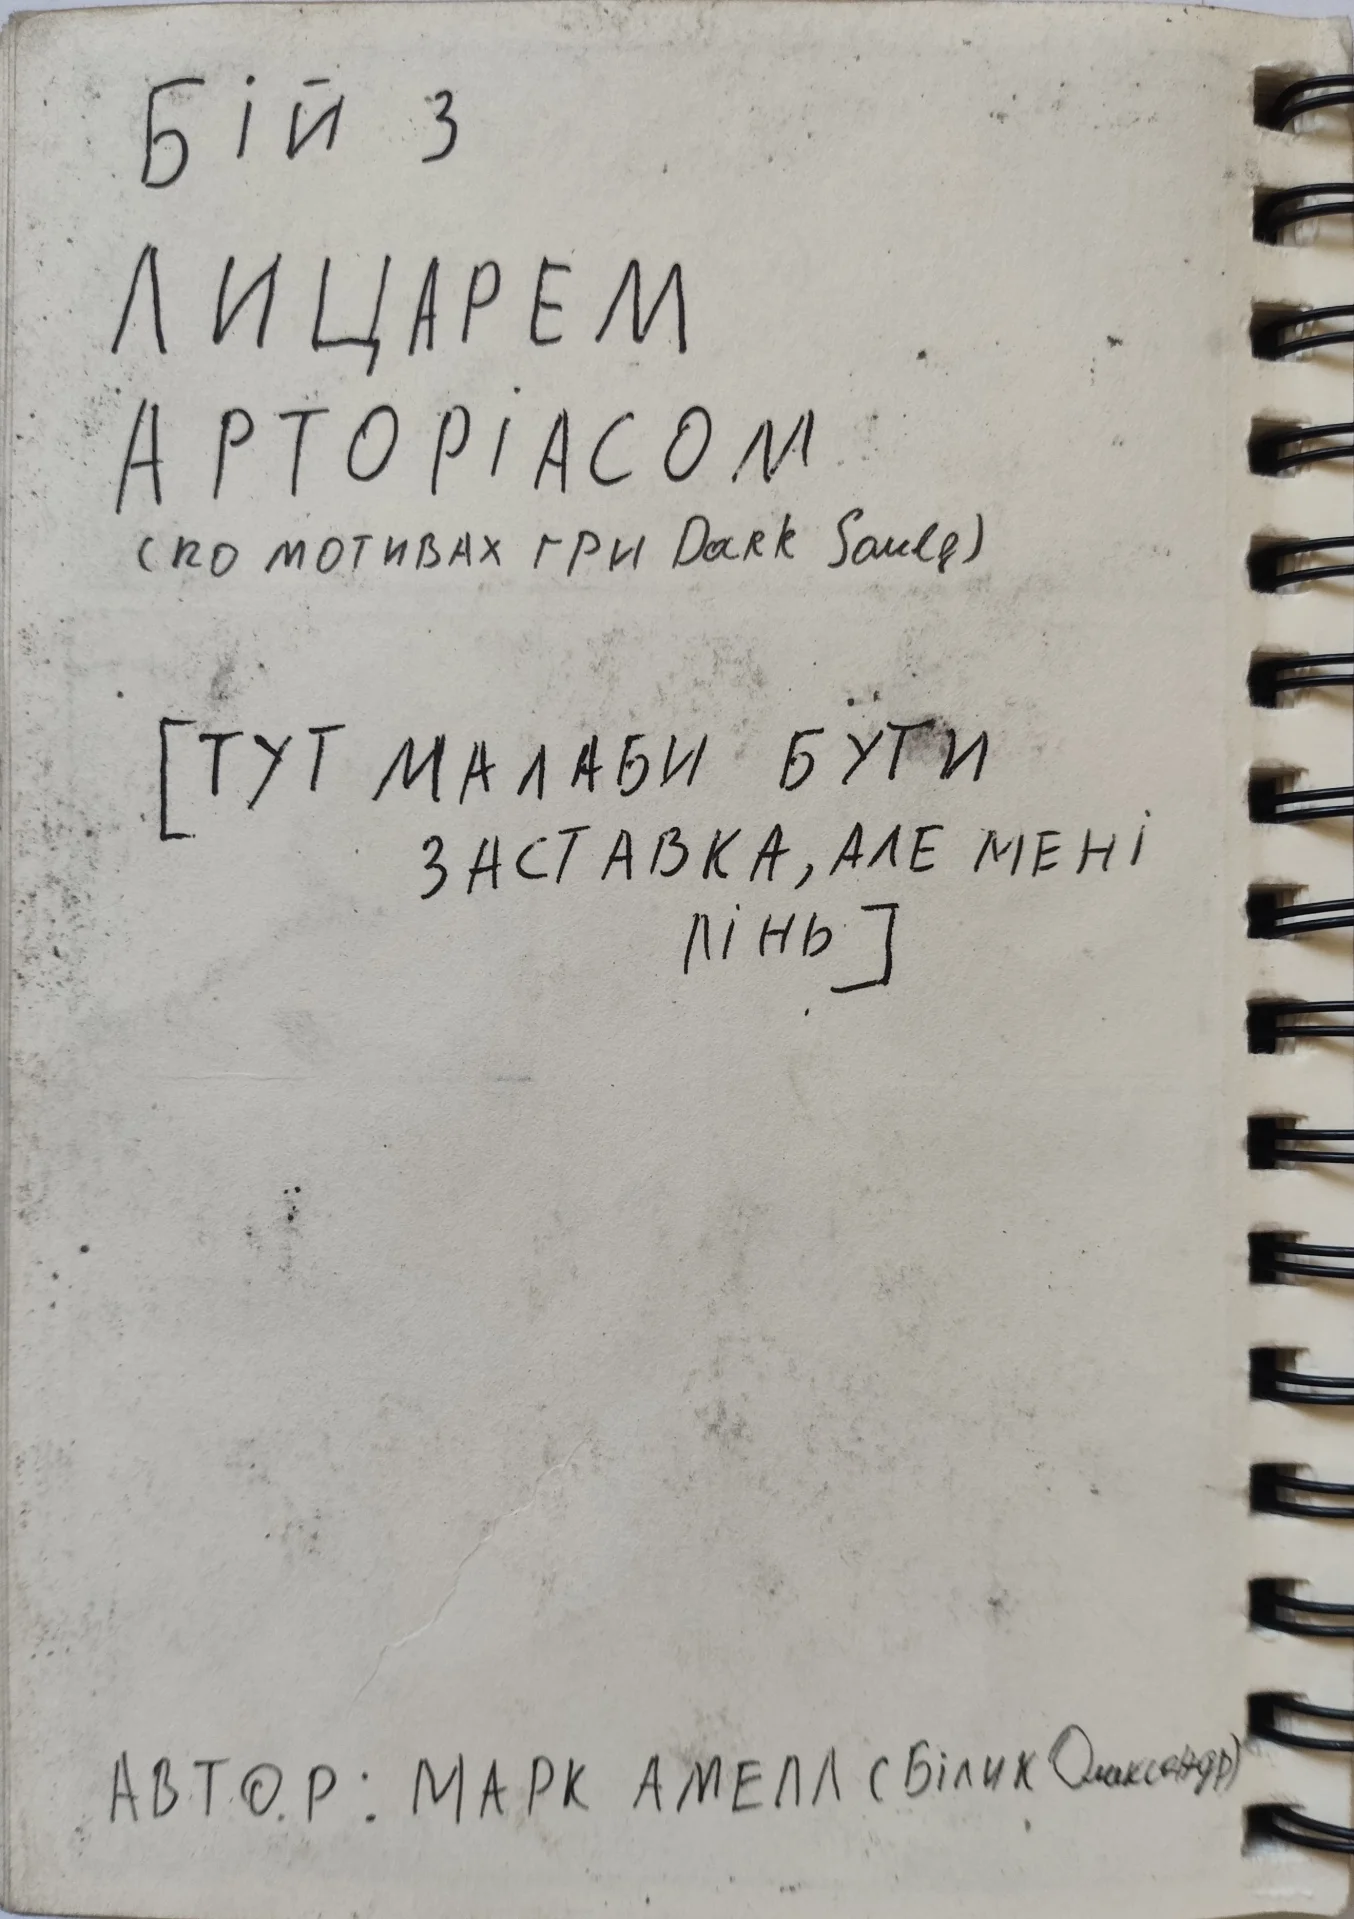 БІЙ З
ЛИЦАРЕМ
АРТОРІАСОМ
(ПО МОТИВАХ ГРИ Dark Souls)
[ТУТ МАЛАБИ БУТИ
ЗАСТАВКА, АЛЕ МЕНІ
ЛІНЬ]
АВТОР: МАРК АМЕЛЛ (БІЛИК Олександр)